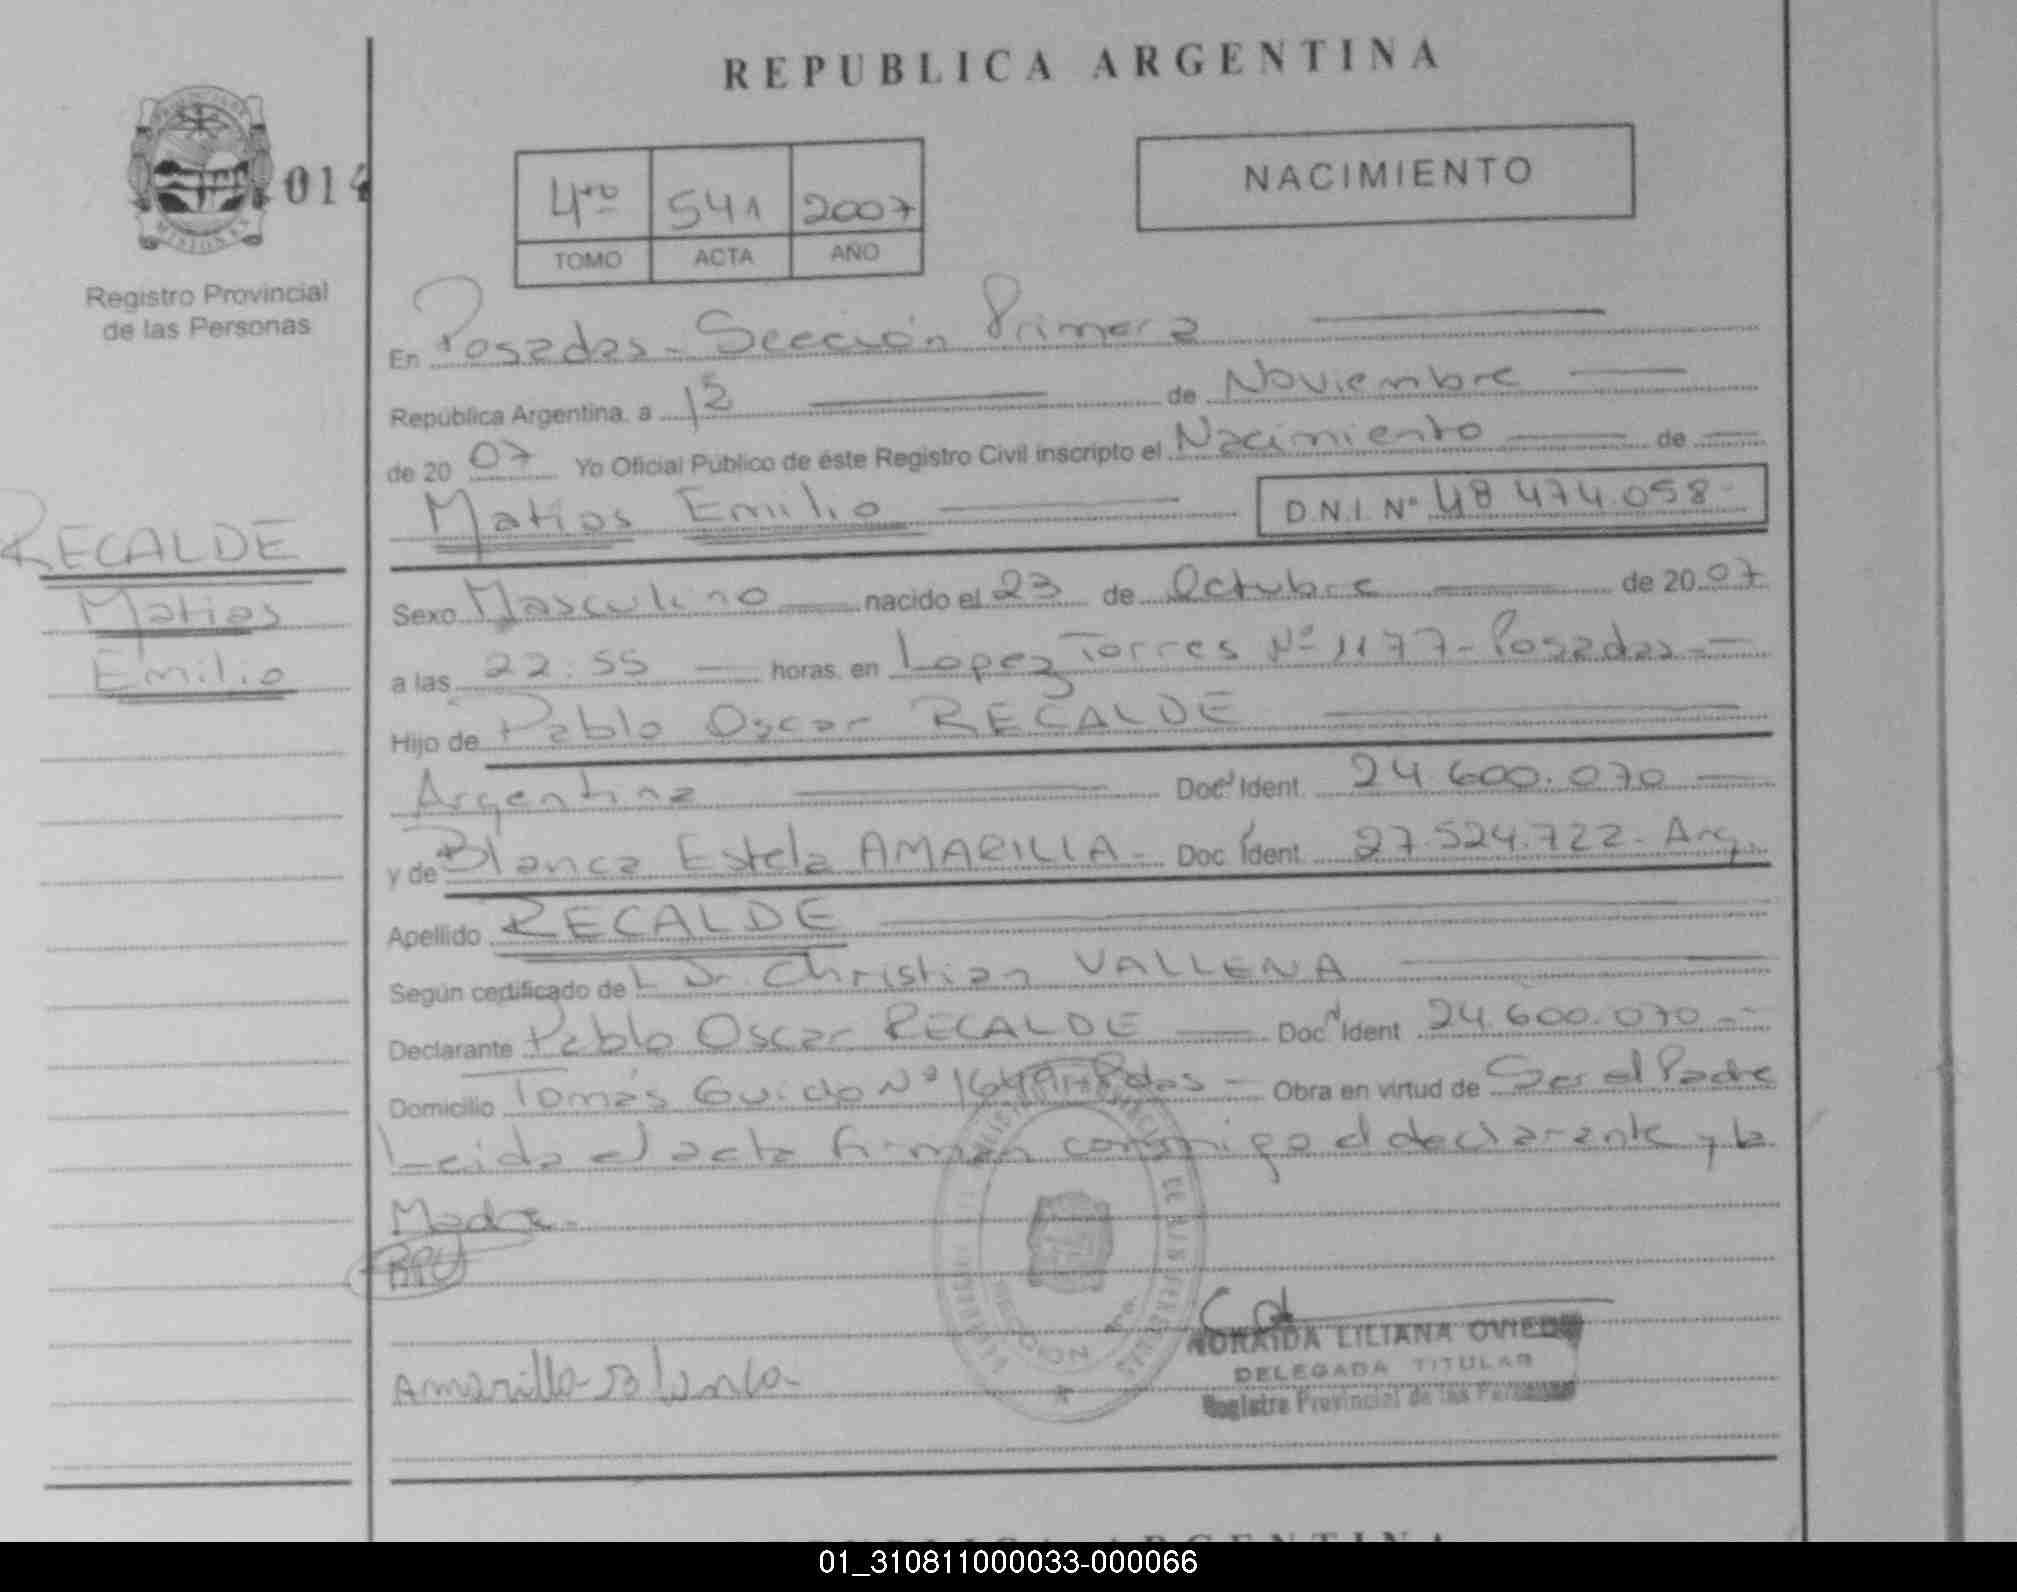 REPUBLICA ARGENTINA
NACIMIENTO
014
4to 541 2007
TOMO ACTA AÑO
MISIONES
Registro Provincial
de las Personas
En Posadas - Sección Primera
República Argentina, a 12 de Noviembre
de 20 07 Yo Oficial Público de éste Registro Civil inscripto el Nacimiento de
Matias Emilio D.N.I. Nº 48 474.058-
RECALDE
Matias
Emilio
Sexo Masculino nacido el 23 de Octubre de 20 07
a las 22:55 horas, en Lopez Torres Nº 1177 - Posadas -
Hijo de Pablo Oscar RECALDE
Argentina Doc. Ident. 24.600.070
y de Blanca Estela AMARILLA - Doc. Ident. 27.524.722 - Arg.
Apellido RECALDE
Según certificado de Dr. Christian VALLENA
Declarante Pablo Oscar RECALDE Doc. Ident 24.600.070 --
Domicilio Tomás Guido Nº Pdas - Obra en virtud de Ser el Padre
Leida el acta firman conmigo el declarante y la
Madre -
Amarilla Blanca -
NORAIDA LILIANA OVIEDO
DELEGADA TITULAR
Registro Provincial de las Personas
01_310811000033-000066